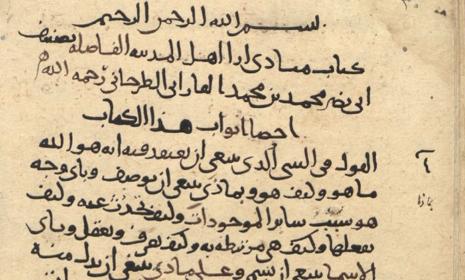 بسم الله الرحمن الرحيم
كتاب مبادى ارا اهل المدينه الفاضله تصنيف
ابى نصر محمد بن محمد الفارابى الطرخانى رحمه الله
احصا ابواب هذا الكتاب
القول فى الشى الذى ينبغى ان يعتقد فيه انه هو الله
ما هو وكيف هو وبماذى ينبغى ان يوصف وباى وجه
هو سبب ساير الموجودات وكيف تحدث عنه وكيف
يفعلها وكيف هى مرتبطه به وكيف يعرف ويعقل وباى
الاسما ينبغى ان يسمى وعلى ماذى ينبغى ان يدل منه